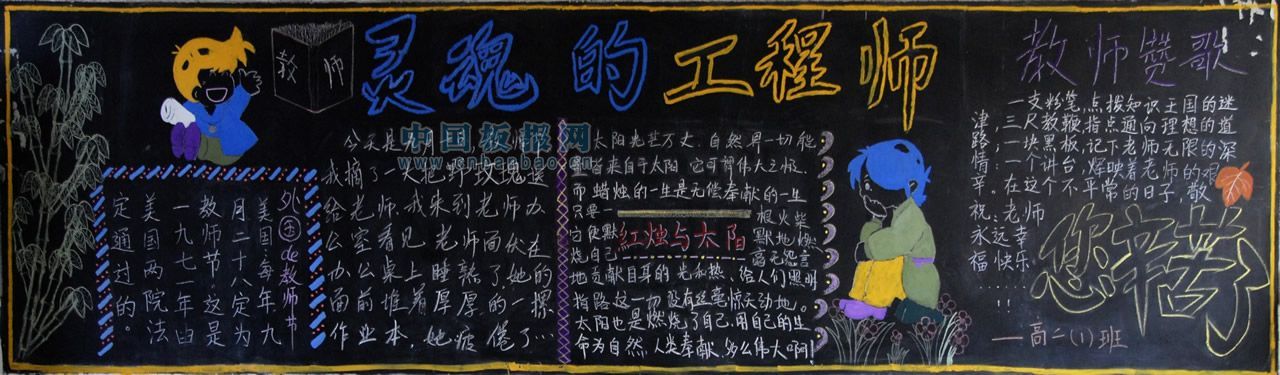 教师
灵魂的工程师
外国de教师节
美国每年九
月二十八定为
教师节。这是
一九七一年由
美国两院法
定通过的。
今天是
我摘了一大把野玫瑰送
给老师.我来到老师办
公室看见老师面伏在
办公桌上睡熟了,她的
面前堆着厚厚的一摞
作业本,她疲倦了…
中国板报网
www.cnbanbao.cn
红烛与太阳
太阳光芒万丈,自然界一切能
量皆来自于太阳,它可谓伟大之极.
而蜡烛的一生是无偿奉献的一生
只要一根火柴
它便默默地燃
烧自己毫无怨言
地贡献自身的光和热.给人们照明
指路这一切没有丝毫惊天动地。
太阳也是燃烧了自己.用自己的生
命为自然.人类奉献.多么伟大啊!
教师赞歌
一支粉笔,点拨知识王国的迷
津,三尺教鞭,指点通向理想的道
路;一块黑板,记下老师无限的深
情;一个讲台,辉映着老师的
辛。在这个不平常的日子,敬
祝:老师
永远幸
福.快乐
……!!
您辛苦了
——高二(1)班